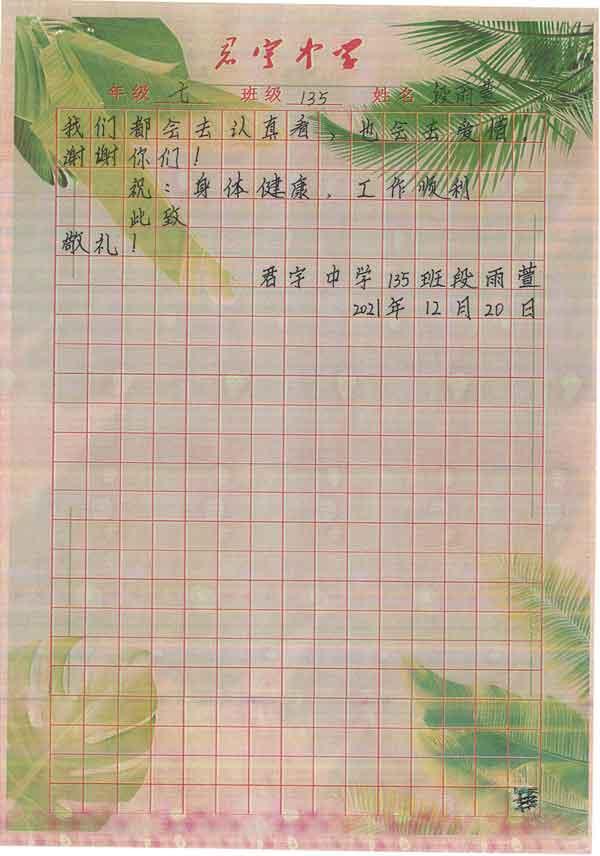 君宇中学
年级 七 班级 135 姓名 段雨萱
我们都会去认真看，也会去爱惜，
谢谢你们！
祝：身体健康、工作顺利
此致
敬礼！
君宇中学135班段雨萱
2021年12月20日